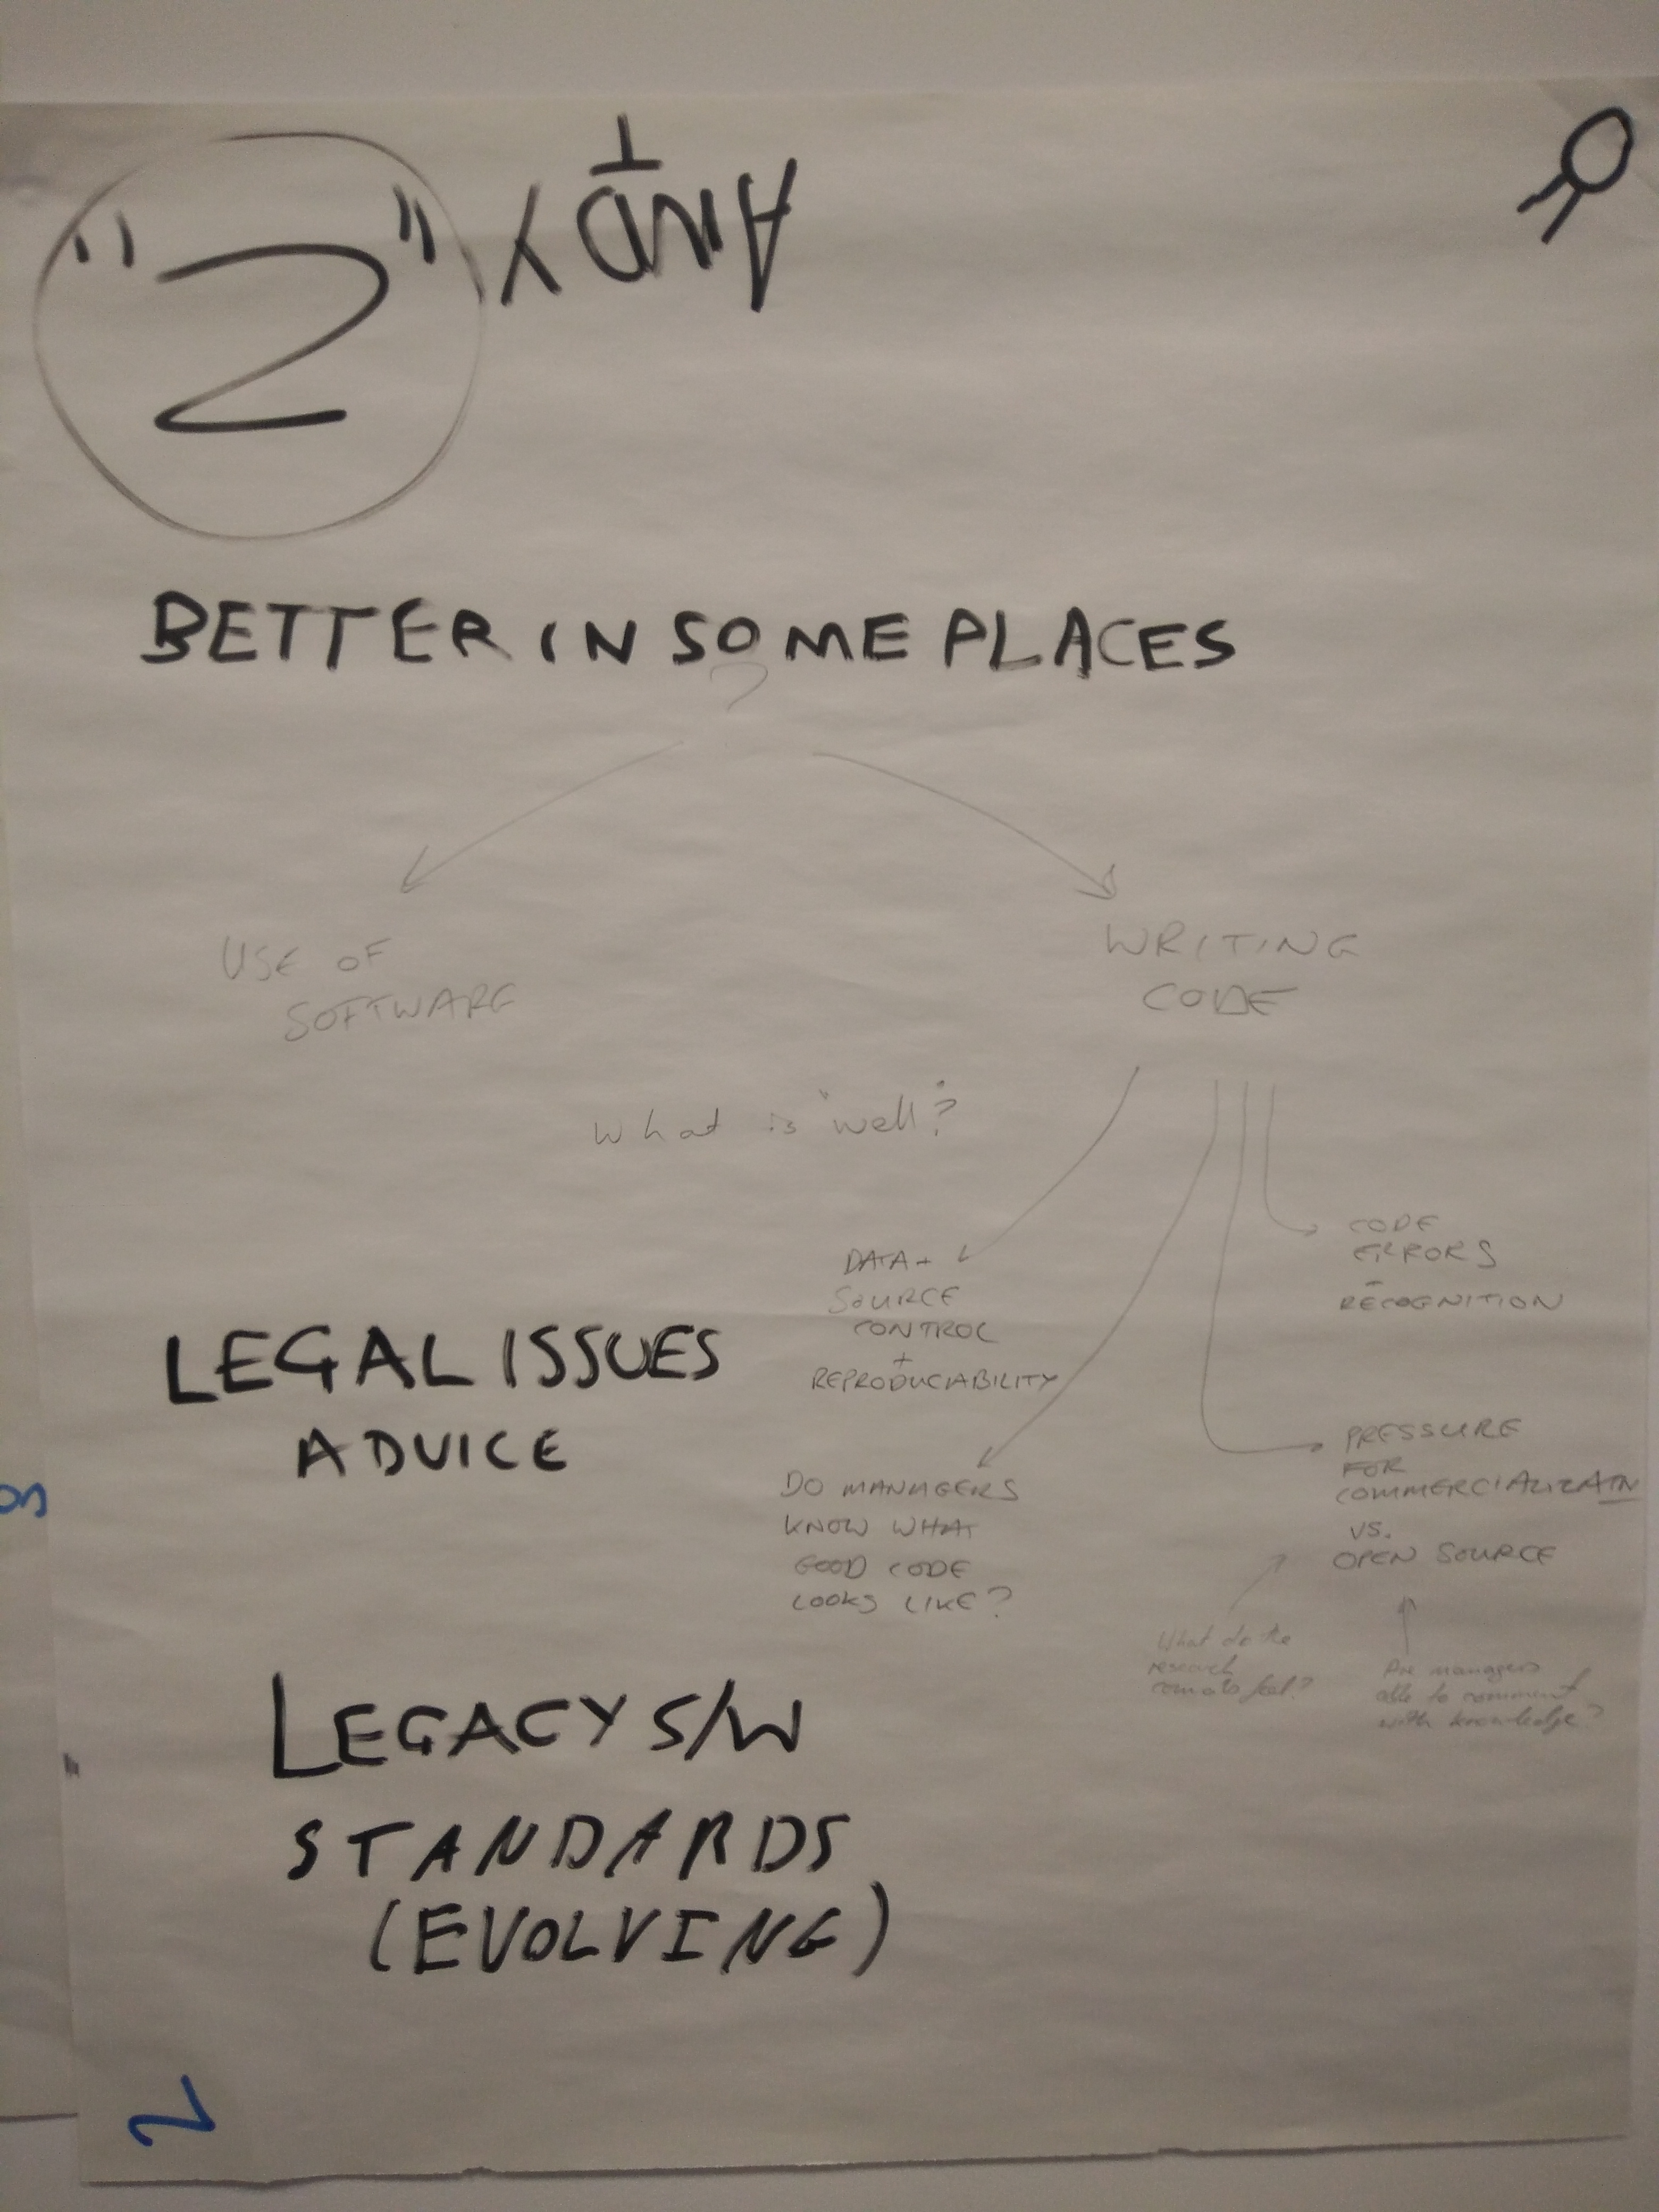 "2"
ANDY T
BETTER IN SOME PLACES
?
USE OF
SOFTWARE
WRITING
CODE
What is "well"?
DATA +
SOURCE
CONTROL
+
REPRODUCIABILITY
CODE
ERRORS
-
RECOGNITION
LEGAL ISSUES
ADVICE
DO MANAGERS
KNOW WHAT
GOOD CODE
LOOKS LIKE?
PRESSURE
FOR
COMMERCIALIZATN
VS.
OPEN SOURCE
What do the
research
feel?
Are managers
able to comment
with knowledge?
LEGACY S/W
STANDARDS
(EVOLVING)
2